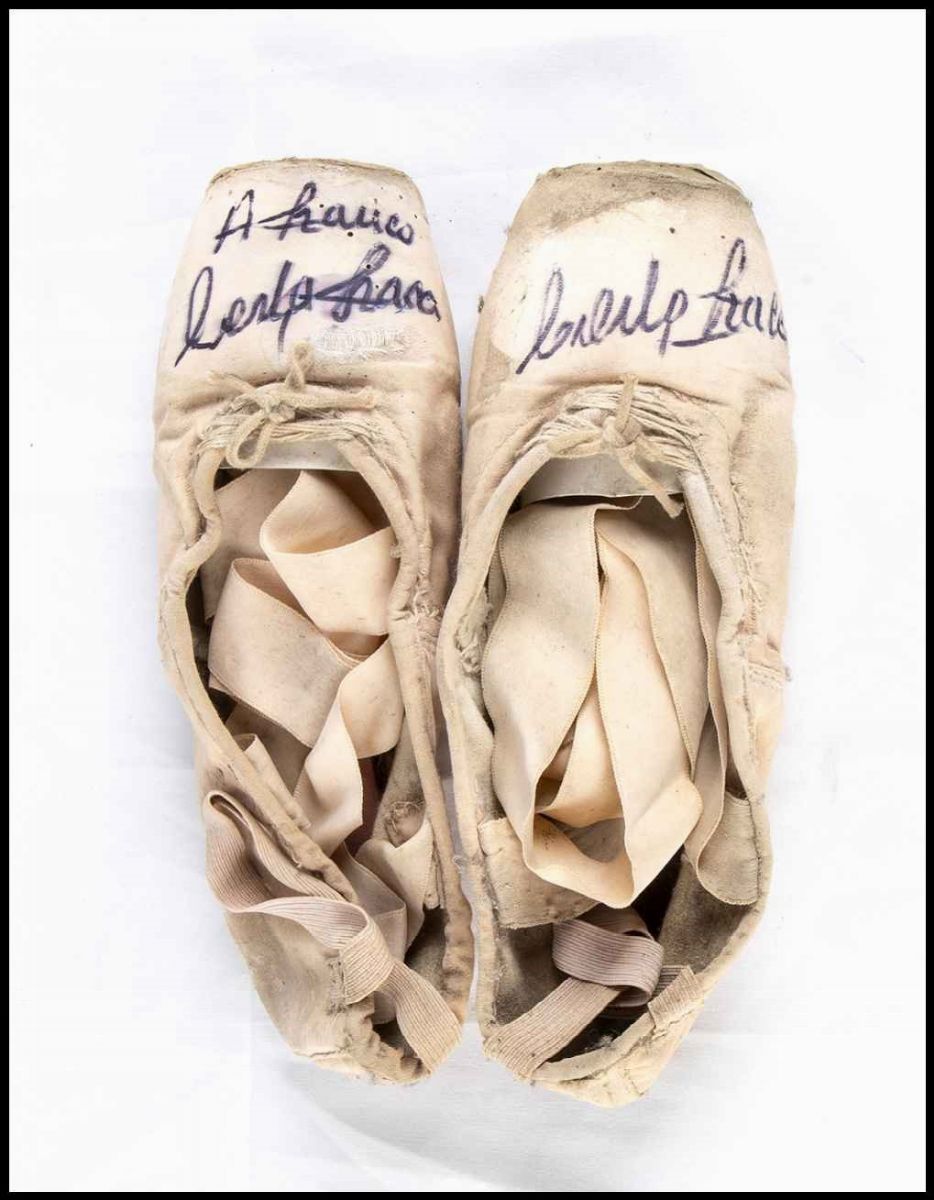 A Franco
Carla Fracci
Carla Fracci